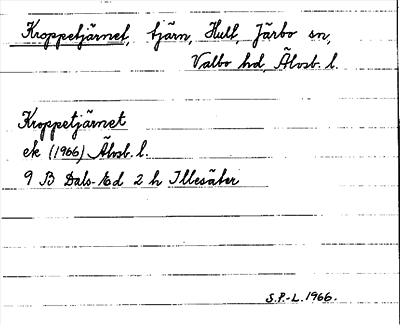 Kroppetjärnet, tjärn, Hult, Järbo sn,
Valbo hd, Älvsb. l.
Kroppetjärnet
ek (1966) Älvsb. l.
9 B Dals-Ed 2 h Illesäter
S.P.-L. 1966.